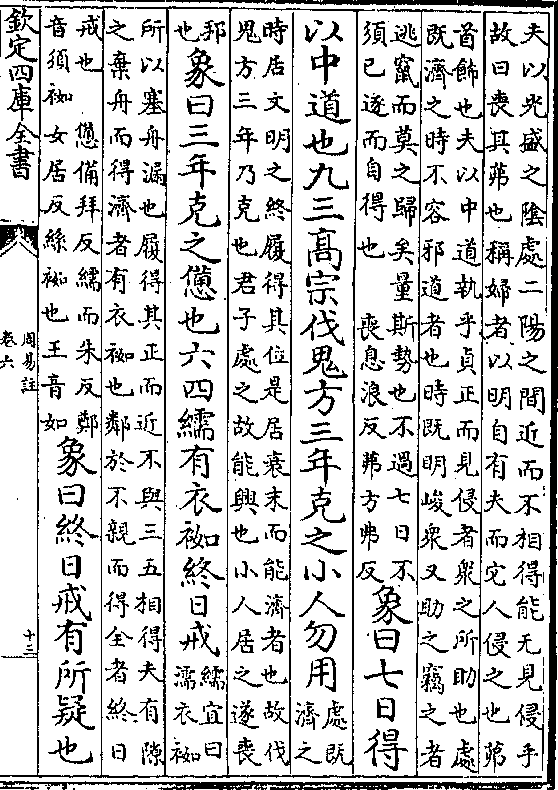 夫以光盛之陰處二陽之間近而不相得能无見侵乎
故曰喪其茀也稱婦者以明自有夫而它人侵之也茀
首飾也夫以中道執乎貞正而見侵者衆之所助也處
既濟之時不容邪道者也時既明峻衆又助之竊之者
逃竄而莫之歸矣量斯勢也不過七日不
須已逐而自得也 喪息浪反茀方弗反
象曰七日得
以中道也九三髙宗伐鬼方三年克之小人勿用
處既
濟之
時居文明之終履得其位是居衰末而能濟者也故伐
鬼方三年乃克也君子處之故能興也小人居之遂喪
邦
也
象曰三年克之憊也六四繻有衣袽終日戒
繻宜曰
濡衣袽
所以塞舟漏也履得其正而近不與三五相得夫有隙
之棄舟而得濟者有衣袽也鄰於不親而得全者終日
戒也 憊備拜反繻而朱反鄭
音須袽女居反絲袽也王音如
象曰終日戒有所疑也
欽定四庫全書
周易註
卷六
十三